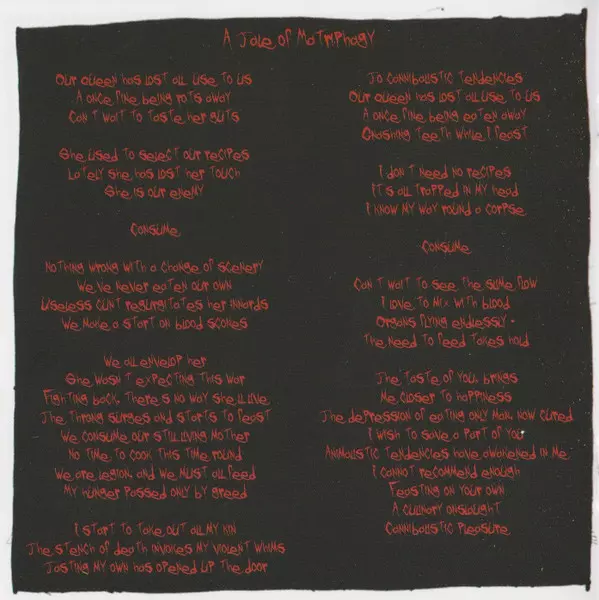 A Tale of Matryphagy
Our queen has lost all use to us
A once fine being rots away
Can't wait to taste her guts
She used to select our recipes
Lately she has lost her touch
She is our enemy
Consume
Nothing wrong with a change of scenery
We've never eaten our own
Useless cunt regurgitates her innards
We make a start on blood scones
We all envelop her
She wasn't expecting this war
Fighting back, there's no way she'll live
The throng surges and starts to feast
We consume our still living mother
No time to cook this time round
We are legion, and we must all feed
My hunger passed only by greed
I start to take out all my kin
The stench of death invokes my violent whims
Tasting my own has opened up the door
To cannibalistic tendencies
Our queen has lost all use to us
A once fine being eaten away
Gnashing teeth while I feast
I don't need no recipes
It's all trapped in my head
I know my way round a corpse
Consume
Can't wait to see the slime flow
I love to mix with blood
Organs flying endlessly -
The need to feed takes hold
The taste of you, brings
Me closer to happiness
The depression of eating only man, now cured
I wish to save a part of you
Animalistic tendencies have awakened in me
I cannot recommend enough
Feasting on your own
A culinary onslaught
Cannibalistic pleasure